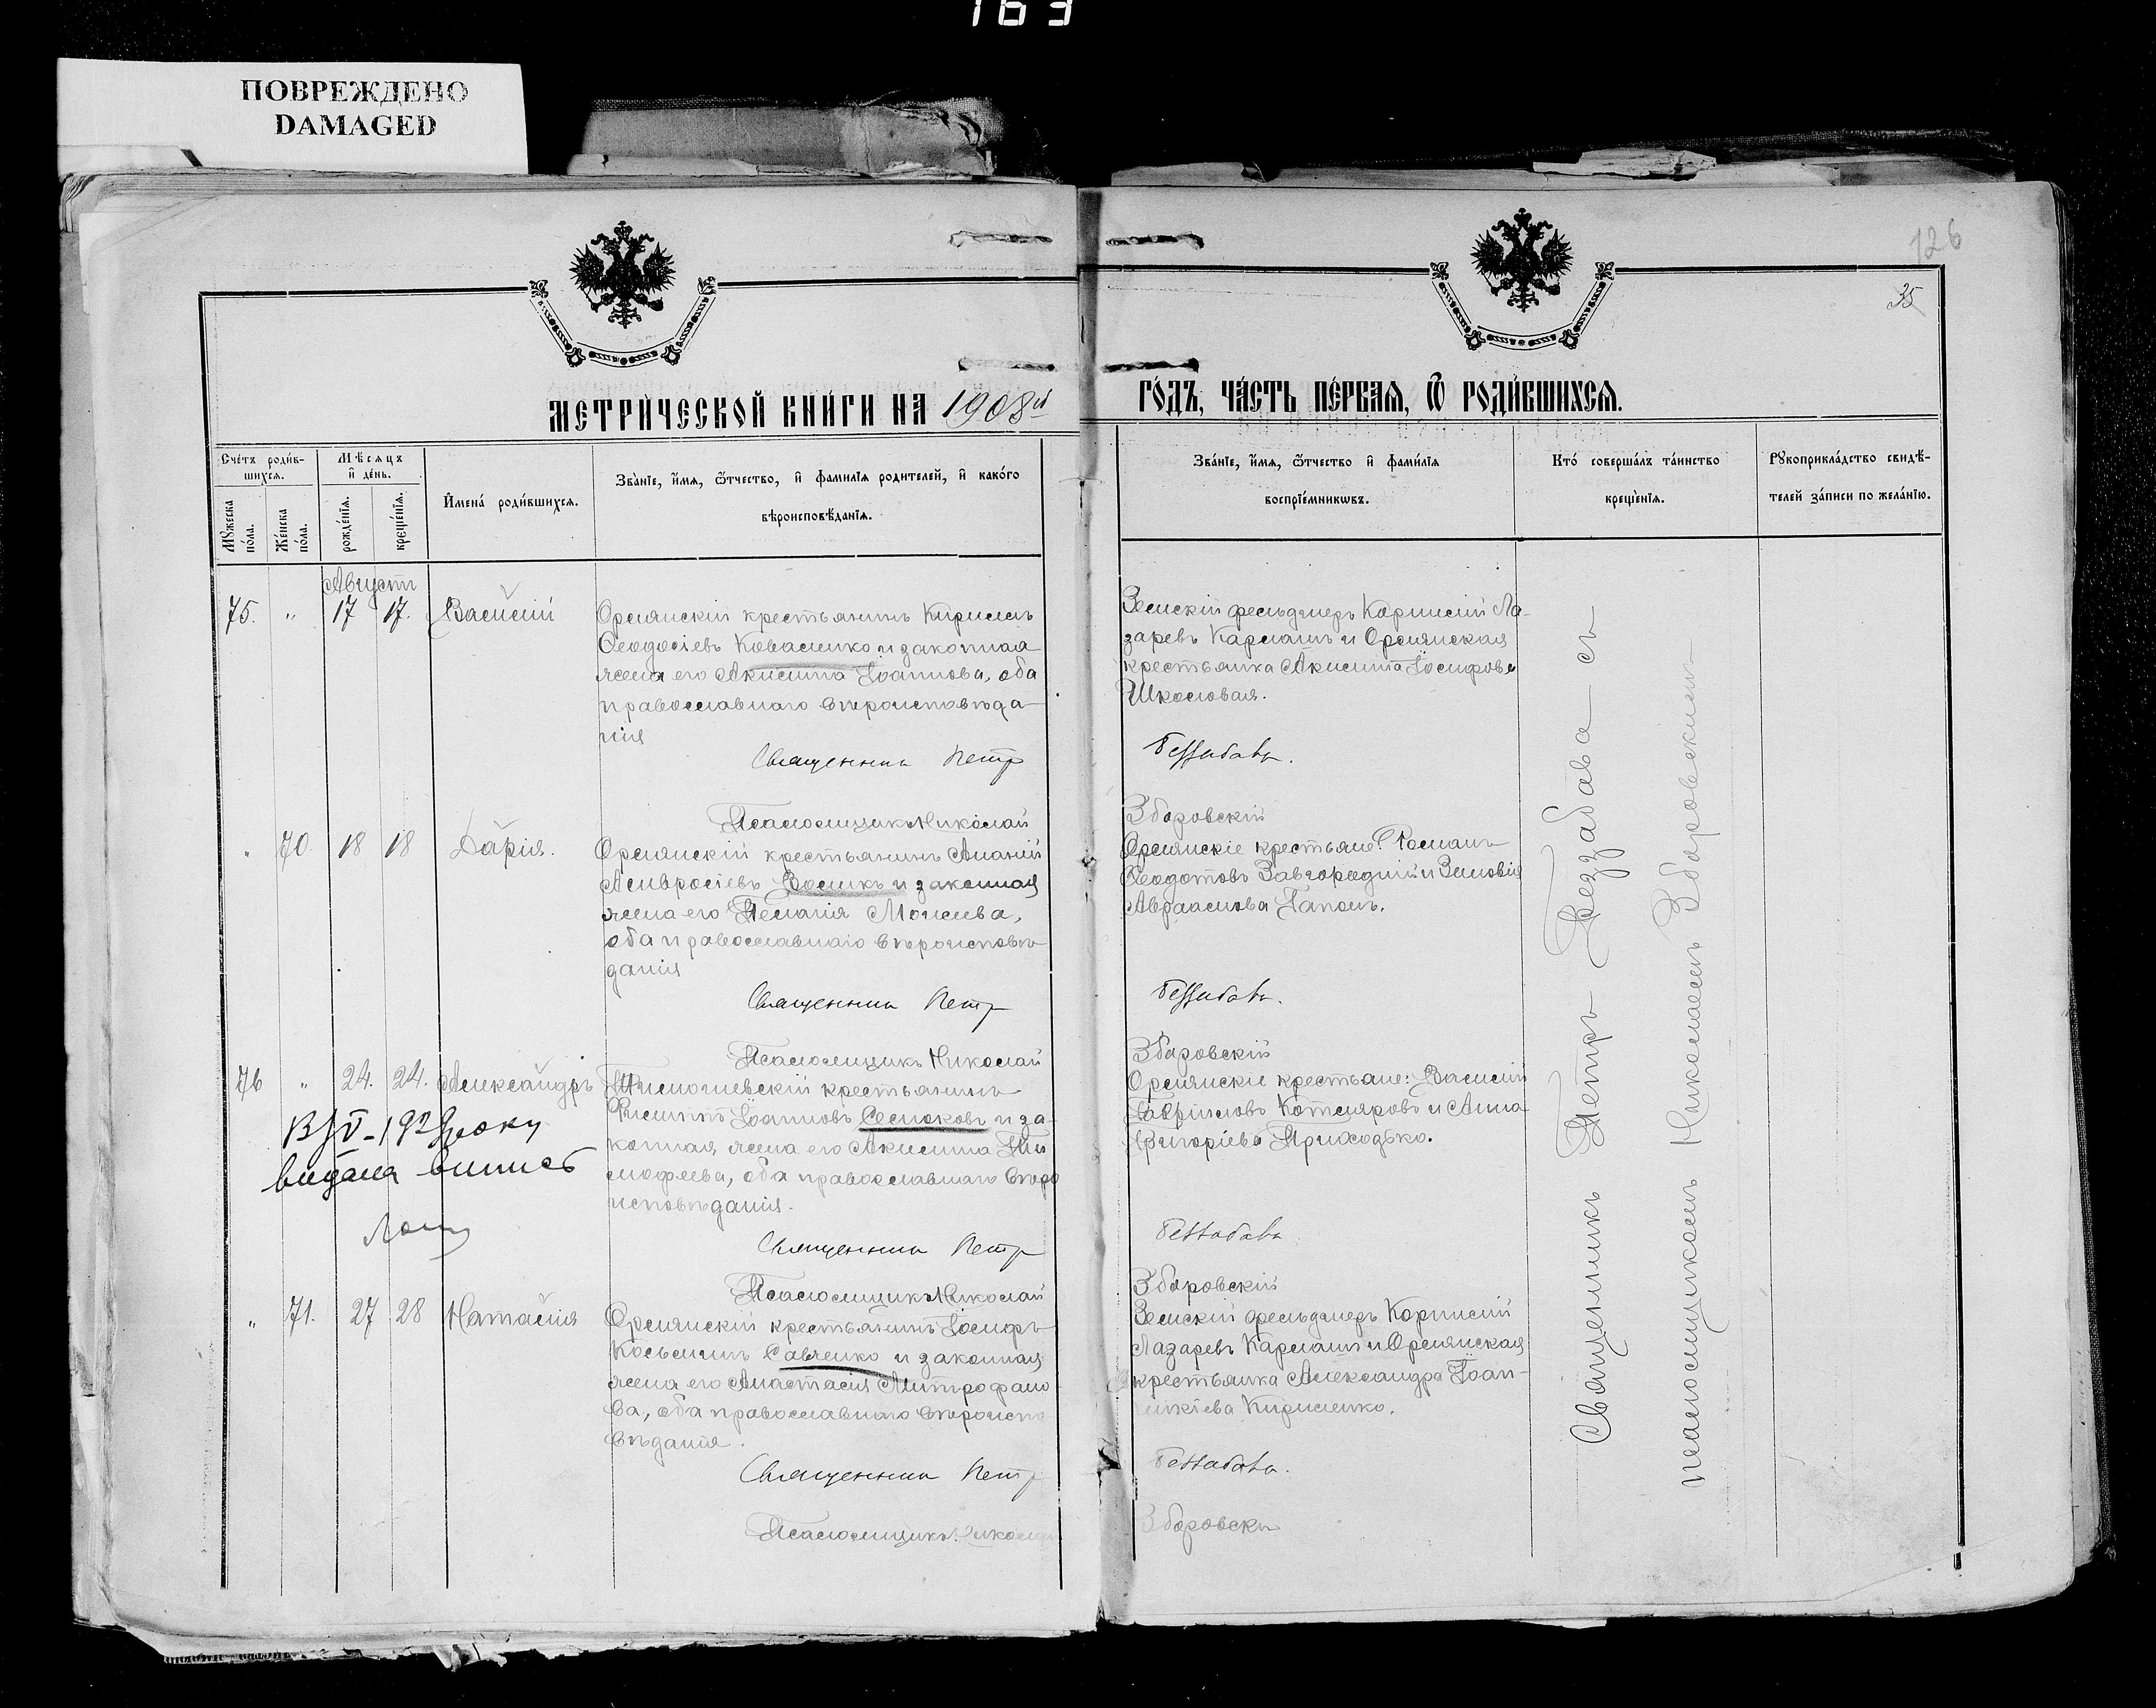 163
ПОВРЕЖДЕНО
DAMAGED
126
35
МЕТРИ́ЧЕСКОЙ КНИ́ГИ НА 1908й
ГО́ДЪ, ЧА́СТЬ ПЕ́РВАЯ, Ѿ РОДИ́ВШИХСЯ.
Сче́тъ роди́в-
шихся.
Мѣсяцъ
и де́нь.
Мꙋжеска по́ла.
Же́нска по́ла.
рожде́нїя.
креще́нїя.
Имена́ роди́вшихся.
Зва́нїе, и́мя, ѻ҆́тчество, и҆ фамилїя родителей, и҆ како́го
вѣроисповѣ́данїя.
Зва́нїе, и́мя, ѻ҆́тчество и҆ фами́лїя
воспрїе́мникѡвъ.
Кто́ соверша́лъ та́инство
креще́нїя.
Рꙋкоприкла́дство свидѣ́-
телей за́писи по жела́нїю.
Августъ
75. " 17 17. Василій
Орлянскій крестьянинъ Кириллъ
Ѳеодосіевъ Коваленко и законная
жена его Акилина Іоаннова, оба
православнаго вѣроисповѣда-
нія
Священникъ Петръ
Псаломщикъ Николай
Земскій фельдшеръ Корнилій Ла-
заревъ Кармашъ и Орлянская
крестьянка Акилина Іосифова
Школовая.
Беззабава.
Зборовскій
" 70. 18 18 Дарія.
Орлянскій крестьянинъ Ананій
Амвросіевъ Воликъ и законная
жена его Пелагія Моисеева,
оба православнаго вѣроисповѣ-
данія
Священникъ Петръ
Псаломщикъ Николай
Орлянскіе крестьяне: Романъ
Ѳеодотовъ Завгородній и Зиновія
Авраамова Гапонъ.
Беззабава.
Зборовскій
76 " 24. 24. Александръ
крестьянинъ
Филиппъ Іоанновъ Семоковъ и за-
конная жена его Акилина Ти-
мофеева, оба православнаго вѣро
исповѣданія.
Священникъ Петръ
Псаломщикъ Николай
року
видана випись
Орлянскіе крестьяне: Василій
Гавріиловъ Котляровъ и Анна
Григоріева Приходько.
Беззабава
Зборовскій
" 71. 27 28 Наталія
Орлянскій крестьянинъ Іосифъ
Косьминъ Савченко и законная
жена его Анастасія Митрофано
ва, оба православнаго вѣроиспо
вѣданія.
Священникъ Петръ
Псаломщикъ Николай
Земскій фельдшеръ Корнилій
Лазаревъ Кармашъ и Орлянская
крестьянка Александра Іоан-
никіева Кириленко.
Беззабава.
Зборовскій
Священникъ Петръ Беззабава съ
псаломщикомъ Николаемъ Зборовскимъ